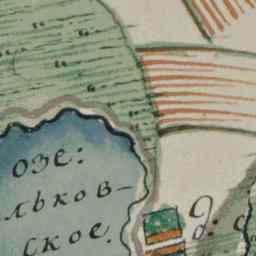 озе:
льков-
ское.
д: с